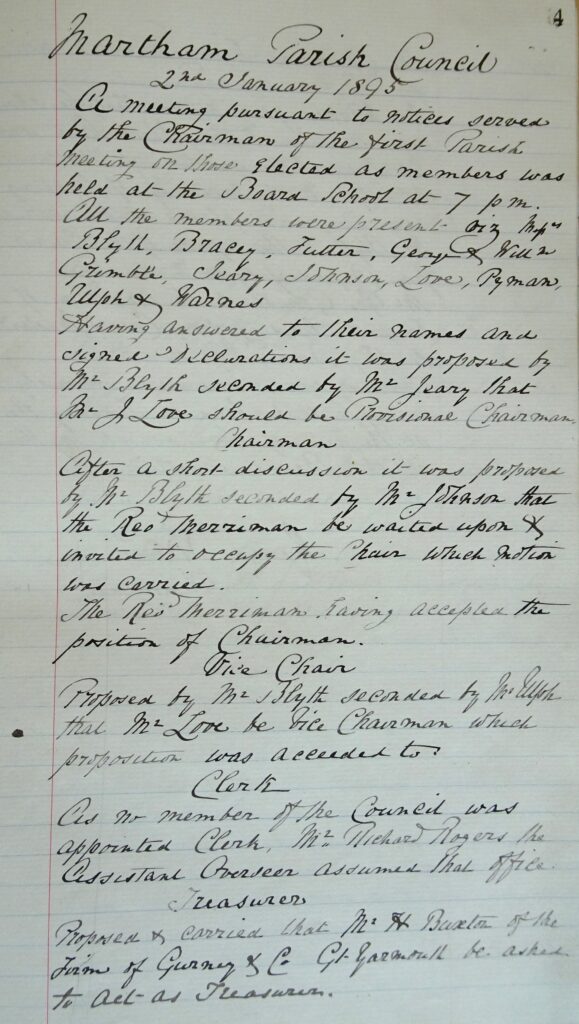 4
Martham Parish Council
2nd January 1895
A meeting pursuant to notices served
by the Chairman of the first Parish
Meeting on those Elected as members was
held at the Board School at 7 p.m.
All the members were present viz Messrs
Blyth, Bracey, Futter, George & Willm
Grimble, Jeary, Johnson, Love, Pyman,
Ulph & Warnes
Having answered to their names and
signed Declarations it was proposed by
Mr Blyth seconded by Mr Jeary that
Mr J. Love should be Provisional Chairman.
Chairman
After a short discussion it was proposed
by Mr Blyth seconded by Mr Johnson that
the Revd Merriman be waited upon &
invited to occupy the Chair which motion
was carried.
The Revd Merriman having accepted the
position of Chairman.
Vice Chair
Proposed by Mr Blyth seconded by Mr Ulph
that Mr Love be Vice Chairman which
proposition was acceeded to
Clerk
As no member of the Council was
appointed Clerk, Mr Richard Rogers the
Assistant Overseer assumed that office.
Treasurer
Proposed & carried that Mr H Buxton of the
Firm of Gurney & Co Gt Yarmouth be asked
to act as Treasurer.